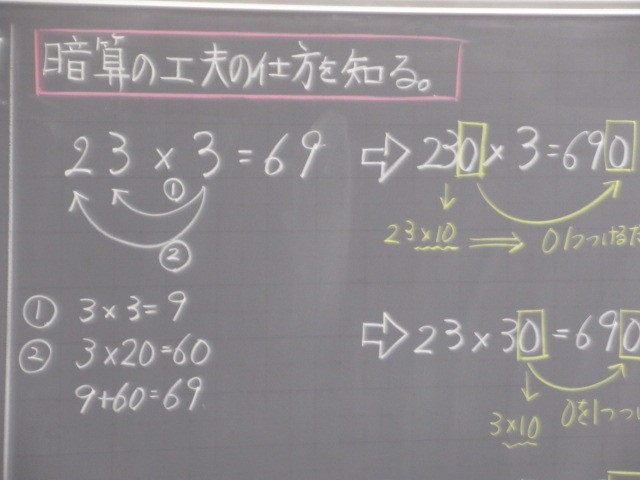 暗算の工夫の仕方を知る。
23×3=69
①
②
① 3×3=9
② 3×20=60
9+60=69
⇨230×3=690
↓
23×10 ⟹ 01つつけるだ
⇨23×30=690
↓
3×10 0を1つつ